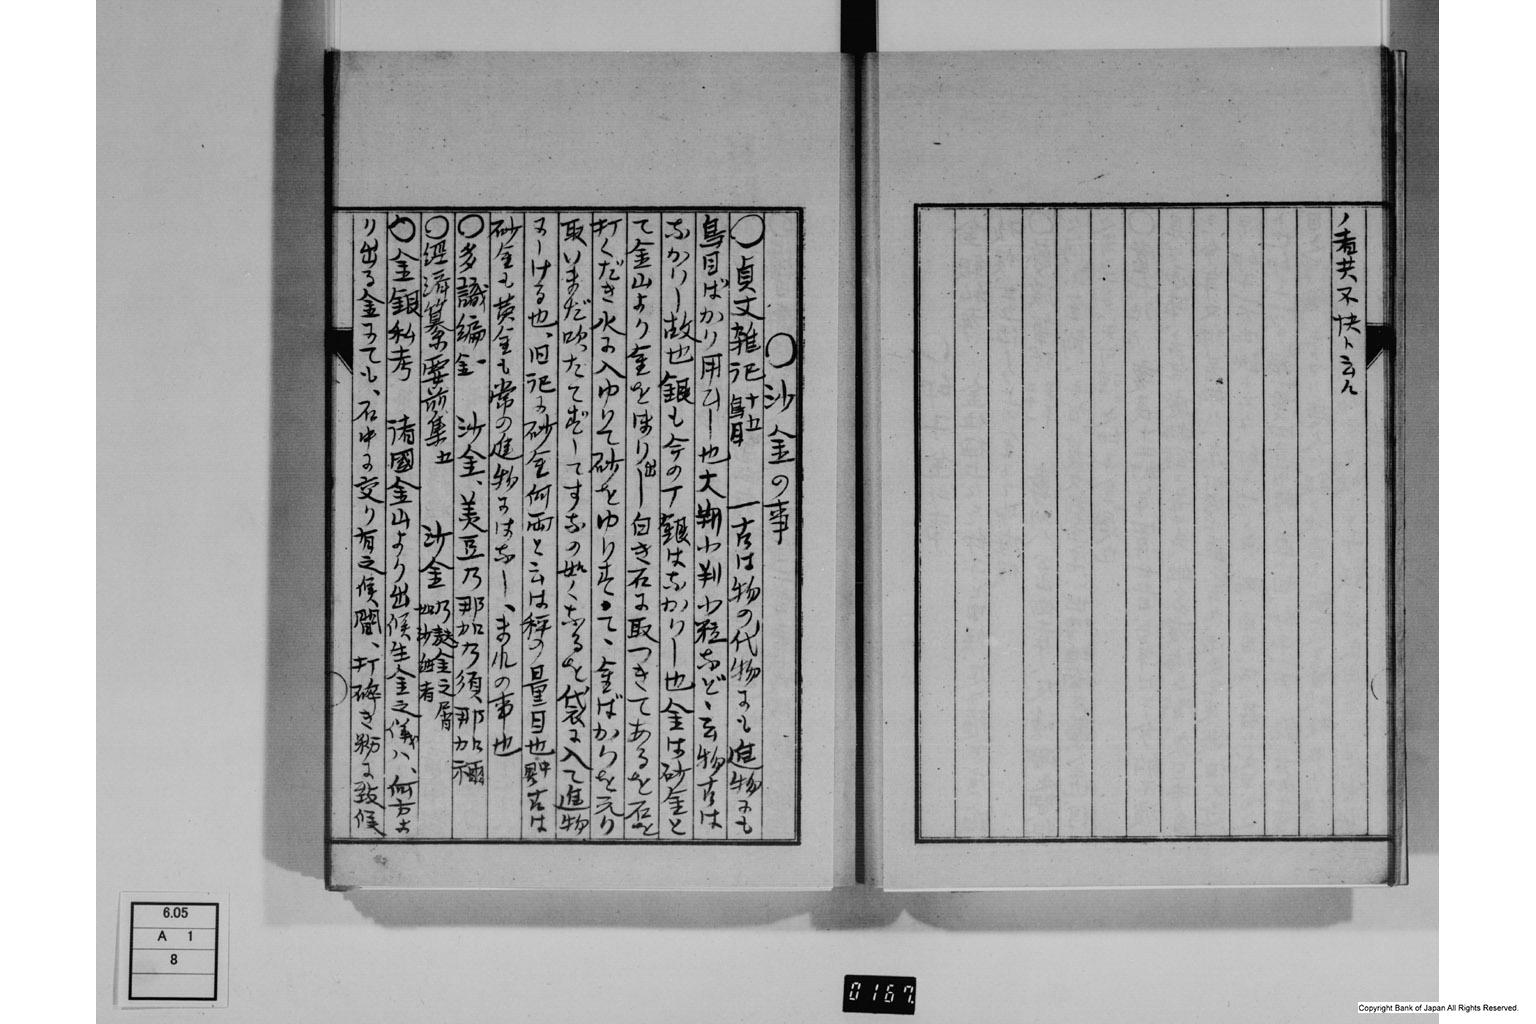 ノ者共不快ト云々
○沙金の事
○貞丈雑記十五鳥目 一古は物の代物にも進物にも
鳥目ばかり用ひし也大判小判小粒など云物古は
なかりし故也銀も今の丁銀はなかりし也金は砂金と
て金山より金をほり出し白き石に取つきてあるを石を
打くだき水に入ゆりて砂をゆりすて、金ばかりを元り
取いまだ吹たてずしてすなの如くなるを袋に入て進物
にしける也、旧記に砂金何両と云は秤の量目也 古は
砂金も黄金も常の進物にはなし、まれの事也
○多識編金一 沙金、美豆乃那加乃須那加禰
○經済纂要前集五 沙金 乃麩金之屑如沙細者
○金銀私考 諸國金山より出候生金之儀ハ、何方ニ
り出る金にても、石中に交り有之候間、打碎き粉に致候
6.05
A 1
8
0167.
Copyright Bank of Japan All Rights Reserved.